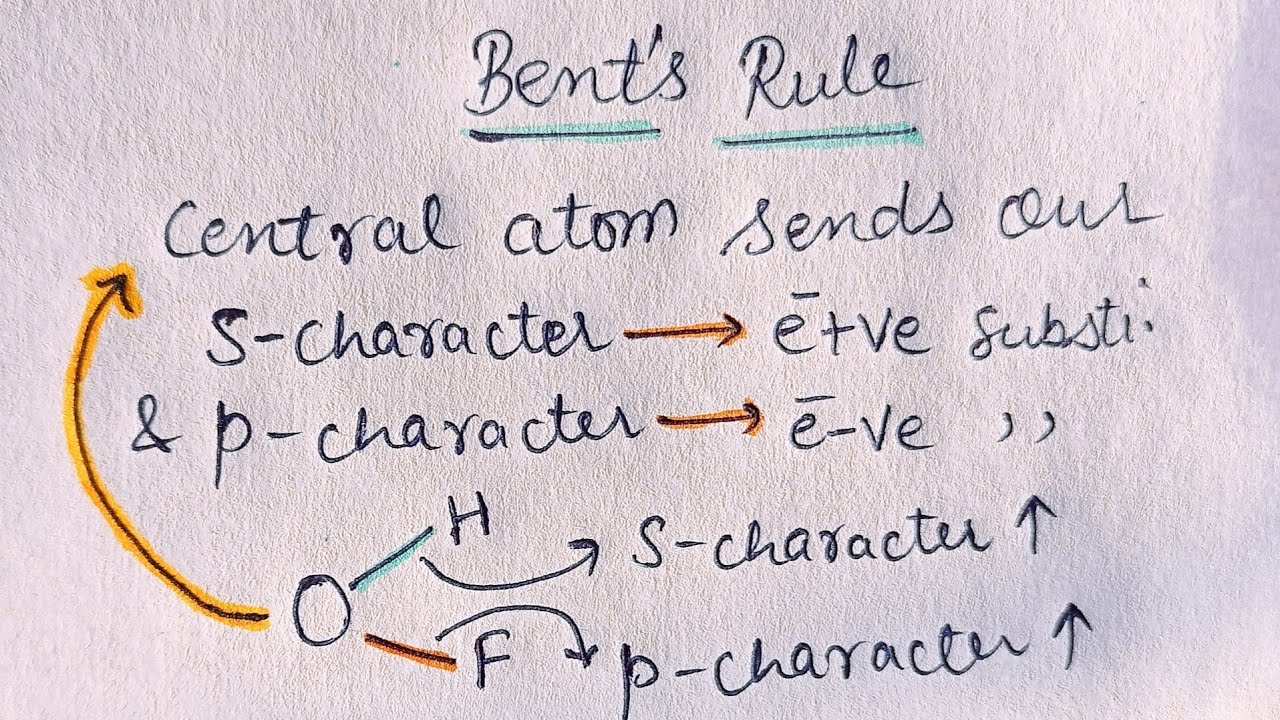 Bent's Rule
Central atom sends out
S-character → ē+ve substi.
& p-character → ē-ve ,,
H
S-character ↑
O
F
p-character ↑